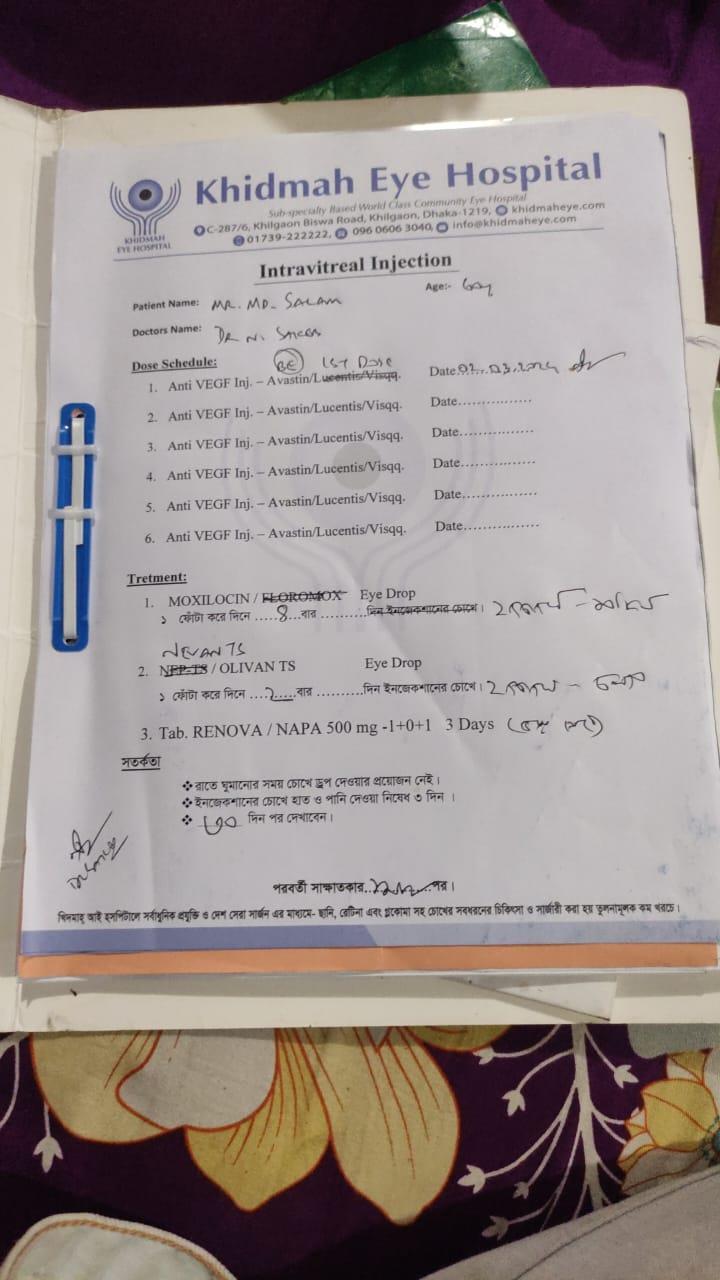 Khidmah Eye Hospital
Sub-specialty Based World Class Community Eye Hospital
C-287/6, Khilgaon Biswa Road, Khilgaon, Dhaka-1219, khidmaheye.com
01739-222222, 096 0606 3040, info@khidmaheye.com
KHIDMAH
EYE HOSPITAL
Intravitreal Injection
Patient Name: MR. MD. SALAM Age:-
Doctors Name: DR N.
Dose Schedule: BE 1ST DOSE
1. Anti VEGF Inj. – Avastin/Lucentis/Visqq. Date
2. Anti VEGF Inj. – Avastin/Lucentis/Visqq. Date................
3. Anti VEGF Inj. – Avastin/Lucentis/Visqq. Date................
4. Anti VEGF Inj. – Avastin/Lucentis/Visqq. Date................
5. Anti VEGF Inj. – Avastin/Lucentis/Visqq. Date................
6. Anti VEGF Inj. – Avastin/Lucentis/Visqq. Date................
Tretment:
1. MOXILOCIN / FLOROMOX Eye Drop
১ ফোঁটা করে দিনে .....৪...বার ..........দিন ইনজেকশানের চোখে।
NEVAN TS
2. NEP-TS / OLIVAN TS Eye Drop
১ ফোঁটা করে দিনে ....২.....বার .............দিন ইনজেকশানের চোখে।
3. Tab. RENOVA / NAPA 500 mg -1+0+1 3 Days
সতর্কতা
❖ রাতে ঘুমানোর সময় চোখে ড্রপ দেওয়ার প্রয়োজন নেই।
❖ ইনজেকশানের চোখে হাত ও পানি দেওয়া নিষেধ ৩ দিন ।
❖ ৩০ দিন পর দেখাবেন।
পরবর্তী সাক্ষাতকার পর।
খিদমাহ্ আই হসপিটালে সর্বাধুনিক প্রযুক্তি ও দেশ সেরা সার্জন এর মাধ্যমে- ছানি, রেটিনা এবং গ্লুকোমা সহ চোখের সবধরনের চিকিৎসা ও সার্জারী করা হয় তুলনামূলক কম খরচে।